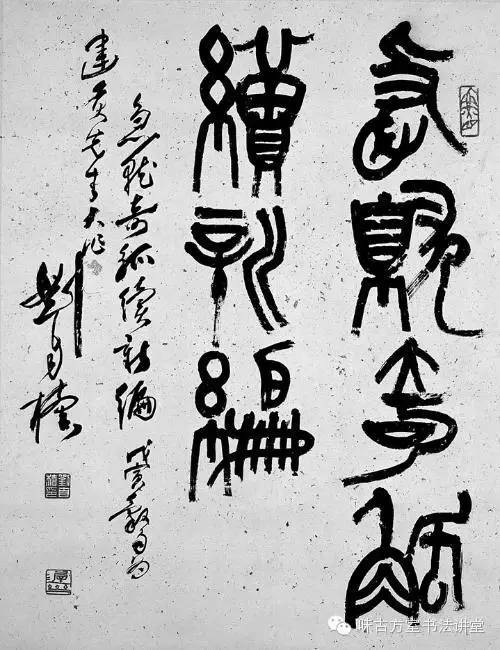 急就奇觚
續編
急就奇觚續編 戊寅
先生大作
劉自櫝
味古方堂书法讲堂